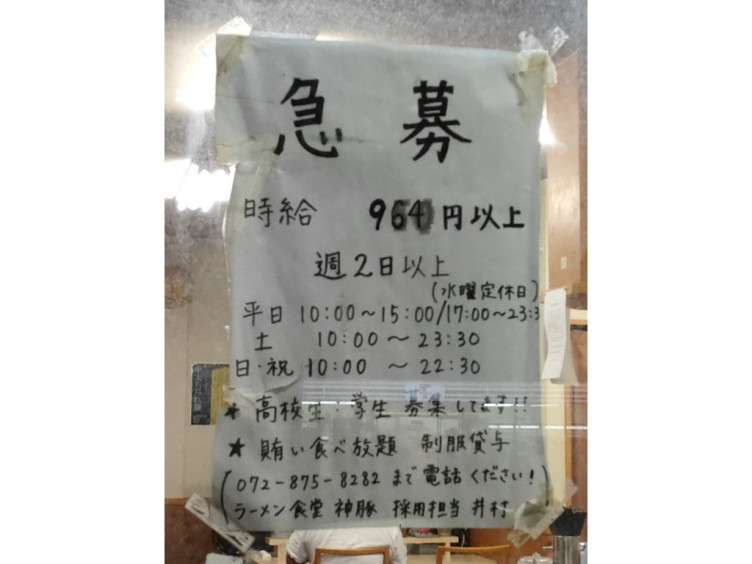 急募
時給 964円以上
週2日以上
(水曜定休日)
平日 10:00～15:00/17:00～23:3
土 10:00～23:30
日・祝 10:00～22:30
★ 高校生・学生 募集してます!!
★ 賄い食べ放題 制服貸与
(072-875-8282 まで電話ください!
ラーメン食堂 神豚 採用担当 井村)